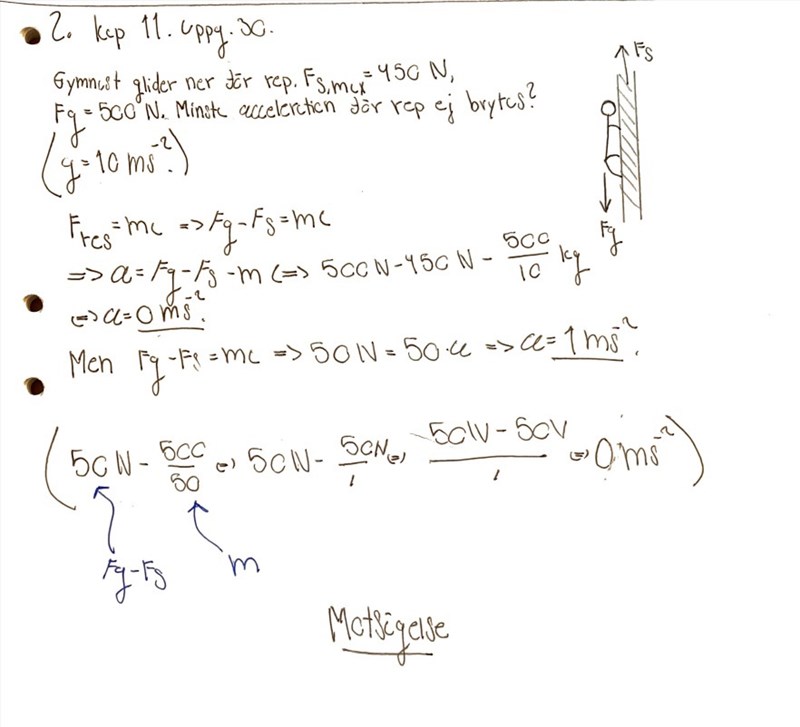 2. kap 11. uppg. 30.
Gymnast glider ner för rep. Fs,max = 450 N,
Fg = 500 N. Minsta acceleration där rep ej brytes?
(g = 10 ms⁻².)
Fs
Fg
Fres = ma => Fg - Fs = ma
=> a = Fg - Fs - m <=> 500 N - 450 N - 500/10 kg
<=> a = 0 ms⁻².
Men Fg - Fs = ma => 50 N = 50·a => a = 1 ms⁻².
(50 N - 500/50 <=> 50 N - 50N/1 <=> 50N - 50N/1 <=> 0 ms⁻²)
Fg - Fs
m
Motsägelse